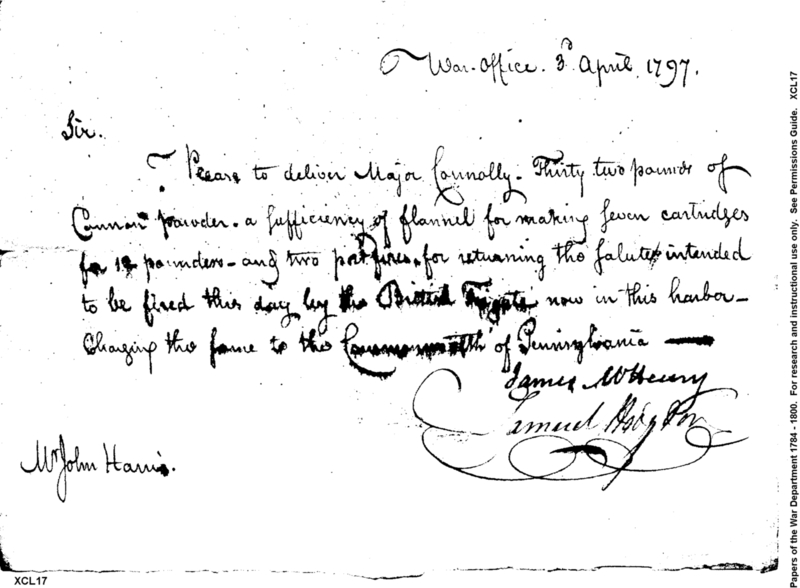 War-Office. 3d April 1797.
Sir.
Please to deliver Major Connolly - Thirty two pounds of
Cannon powder - a sufficiency of flannel for making seven cartridges
for 12 pounders - and two port fires, for returning the salute intended
to be fired this day by the British Frigate now in this harbor -
Charging the same to the Commonwealth of Pennsylvania -
James McHenry
Samuel Hodgdon
Mr John Harris.
XCL17
Papers of the War Department 1784 - 1800. For research and instructional use only. See Permissions Guide. XCL17